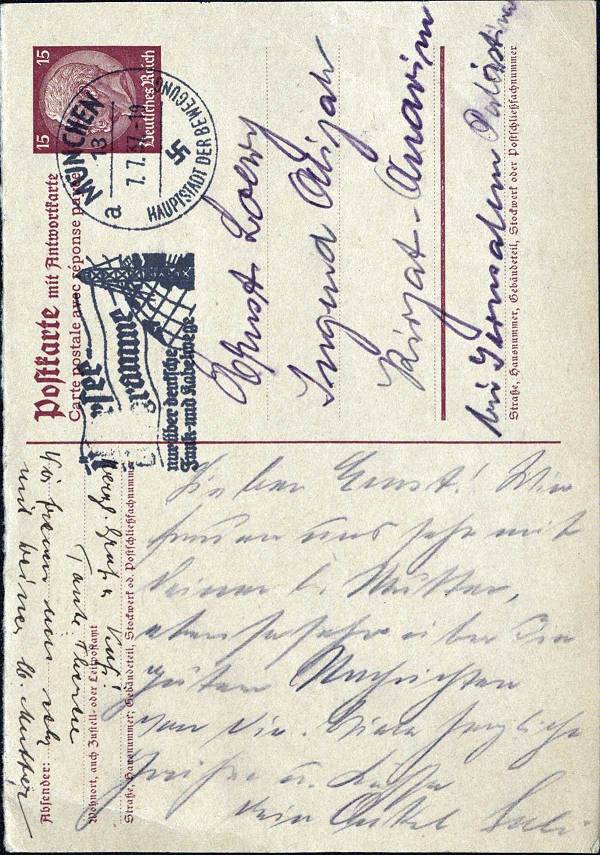 15 15
Deutsches Reich
MÜNCHEN
13
7.7.37.-19
a
HAUPTSTADT DER BEWEGUNG
Postkarte mit Antwortkarte
Carte postale avec réponse payée
nur über deutsche
Funk- und Kabelwege
Ernst Loewy
Jugend Alijah
Kirjat-Anavim
bei Jerusalem Palästina
Straße, Hausnummer, Gebäudeteil, Stockwerk oder Postschließfachnummer
Lieber Ernst! Wir
freuen uns sehr mit
Deiner l. Mutter,
ebenso sehr über die
guten Nachrichten
von Dir. Viele herzliche
Grüße u. Küsse
Dein Onkel
Absender:
Wohnort, auch Zustell- oder Leitpostamt
Straße, Hausnummer, Gebäudeteil, Stockwerk od. Postschließfachnummer
Wir freuen uns sehr
mit deiner lb. Mutter
herzl. Gruß u. Kuß
Tante